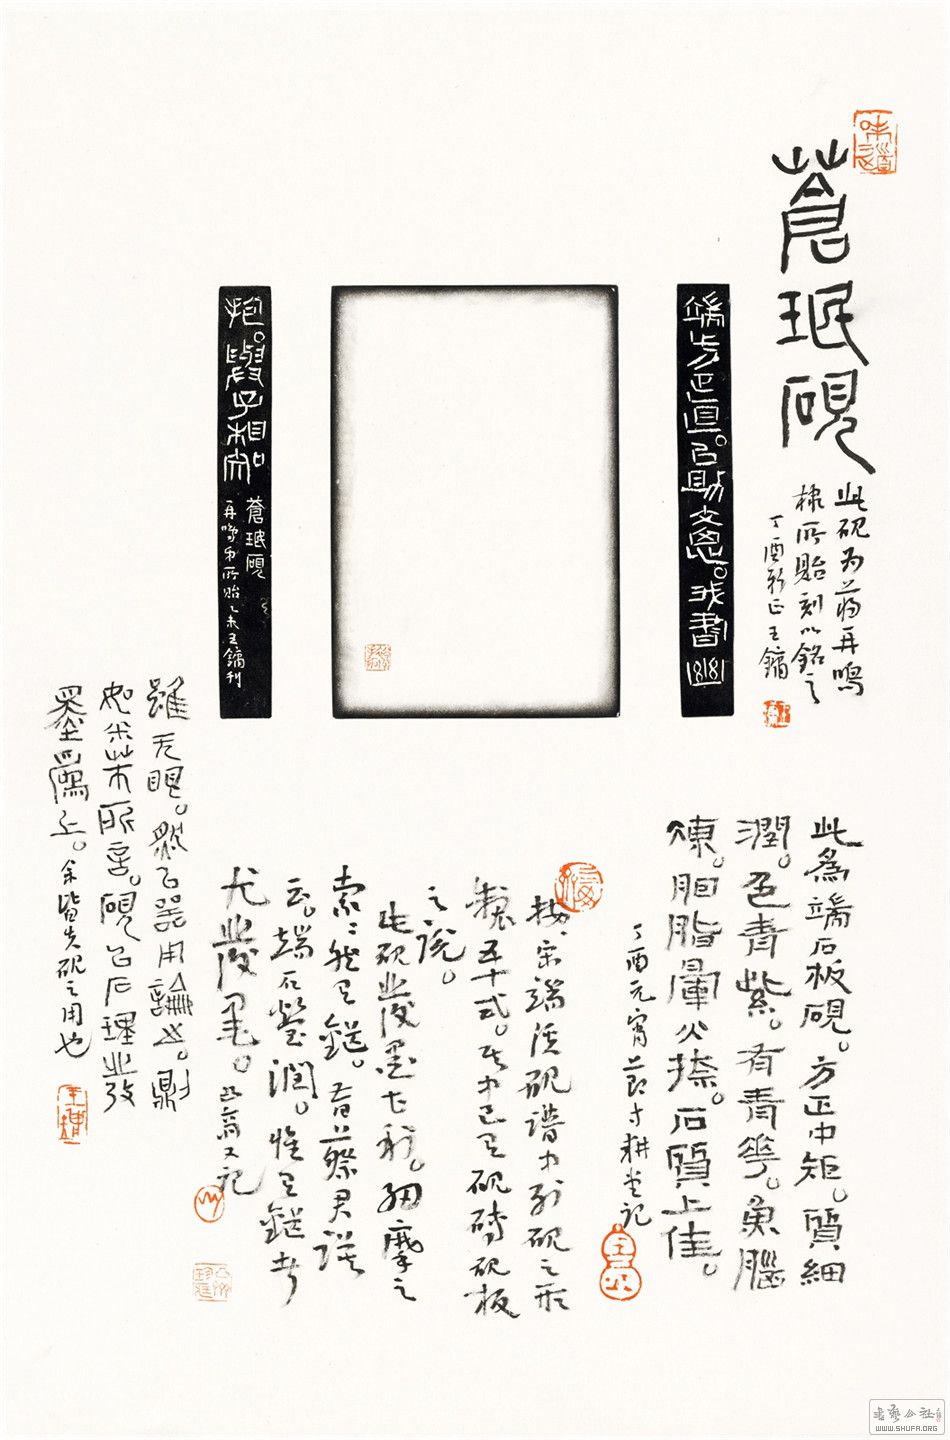 蒼珉硯
此硯為蔣再鳴
棣所貽刻以銘之
丁酉新正王鏞
端方正直。以助文思。我書
抱。與子相知
蒼珉硯
再鳴弟所貽乙未王鏞刊
此為端石板硯。方正中矩。質細
潤。色青紫。有青花。魚腦
凍。胭脂暈火捺。石質上佳。
丁酉元宵節寸耕堂記
按宋端溪硯譜中列硯之形
製五十式。其中已有硯磚硯板
之說。
此硯發墨七秒。細摩之
索索然有鋩。昔蔡君謨
云。端石瑩潤。惟有鋩者
尤發墨。 又記
雖无眼。然以器用論也。
如米芾所言。硯以石理發
墨為上。余皆失硯之用也
WWW.SHUFA.ORG